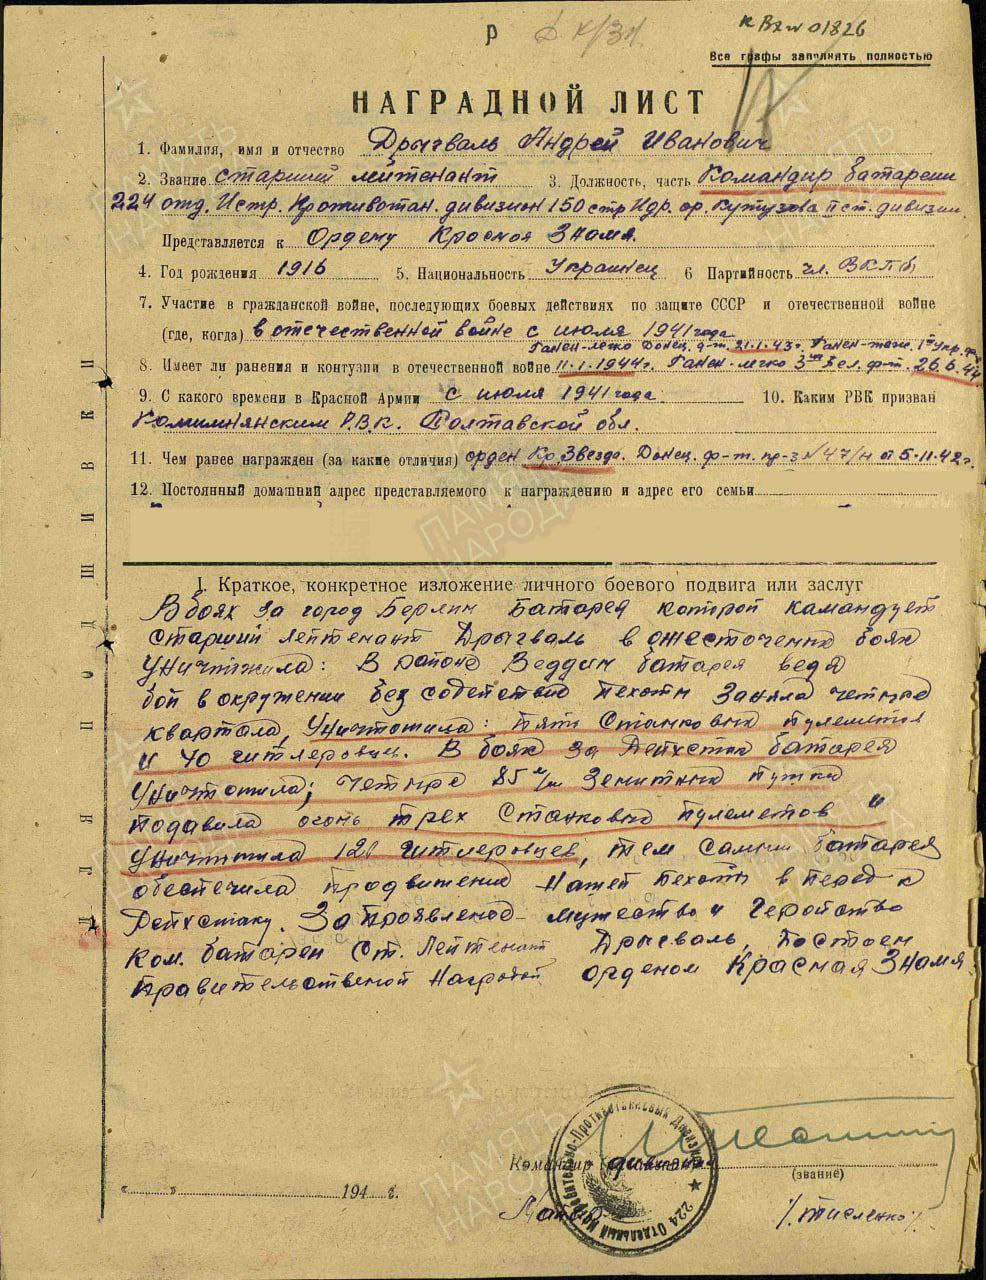 Р
Все графы заполнять полностью
НАГРАДНОЙ ЛИСТ
1. Фамилия, имя и отчество Дрыгваль Андрей Иванович
2. Звание старший лейтенант 3. Должность, часть Командир батареи
224 отд. Истр. Противотан. дивизион 150 стр Идр. ор. Кутузова II ст. дивизии
Представляется к Ордену Красная Знамя.
4. Год рождения 1916 5. Национальность Украинец 6 Партийность чл. ВКПб
7. Участие в гражданской войне, последующих боевых действиях по защите СССР и отечественной войне
(где, когда) в отечественной войне с июля 1941 года
Ранен-легко Донец. ф-т. 21.1.43г. Ранен-тяж. 1й Укр. ф
8. Имеет ли ранения и контузии в отечественной войне 11.1.1944г. Ранен-легко 3й бел. ф-т. 26.6.44
9. С какого времени в Красной Армии с июля 1941 года 10. Каким РВК призван
Р.В.К. Полтавской обл.
11. Чем ранее награжден (за какие отличия) орден Кр. Звезда. Донец. ф-т. пр-з N 47/н от 5.11.42г.
12. Постоянный домашний адрес представляемого к награждению и адрес его семьи
ДЛЯ ПОДШИВКИ
I. Краткое, конкретное изложение личного боевого подвига или заслуг
В боях за город Берлин батарея которой камандует
старший лейтенант Дрыгваль в ожесточенна боях
уничтжила: В районе Веддин батарея ведя
бой в окружении без содействия пехоты заняла четыре
квартала, уничтожила: пять станковых пулемётов
и 40 гитлеровцев. В боях за Рейхстаг батарея
уничтожила; четыре 85 м/м зенитных пушки
подавила огонь трех станковых пулеметов и
уничтожила 120 гитлеровцев, тем самым батарея
обеспечила продвижение нашей пехоты вперед к
Рейхстагу. За проявленое мужество и геройство
ком. батареи ст. лейтенант Дрыгваль, достоен
правительственой наградой орденом Красная Знамя
Командир дивизиона
(звание)
224 Отдельный Истребительно-Противотанковый Дивизион
«......» 194 г.
/Тисленко/